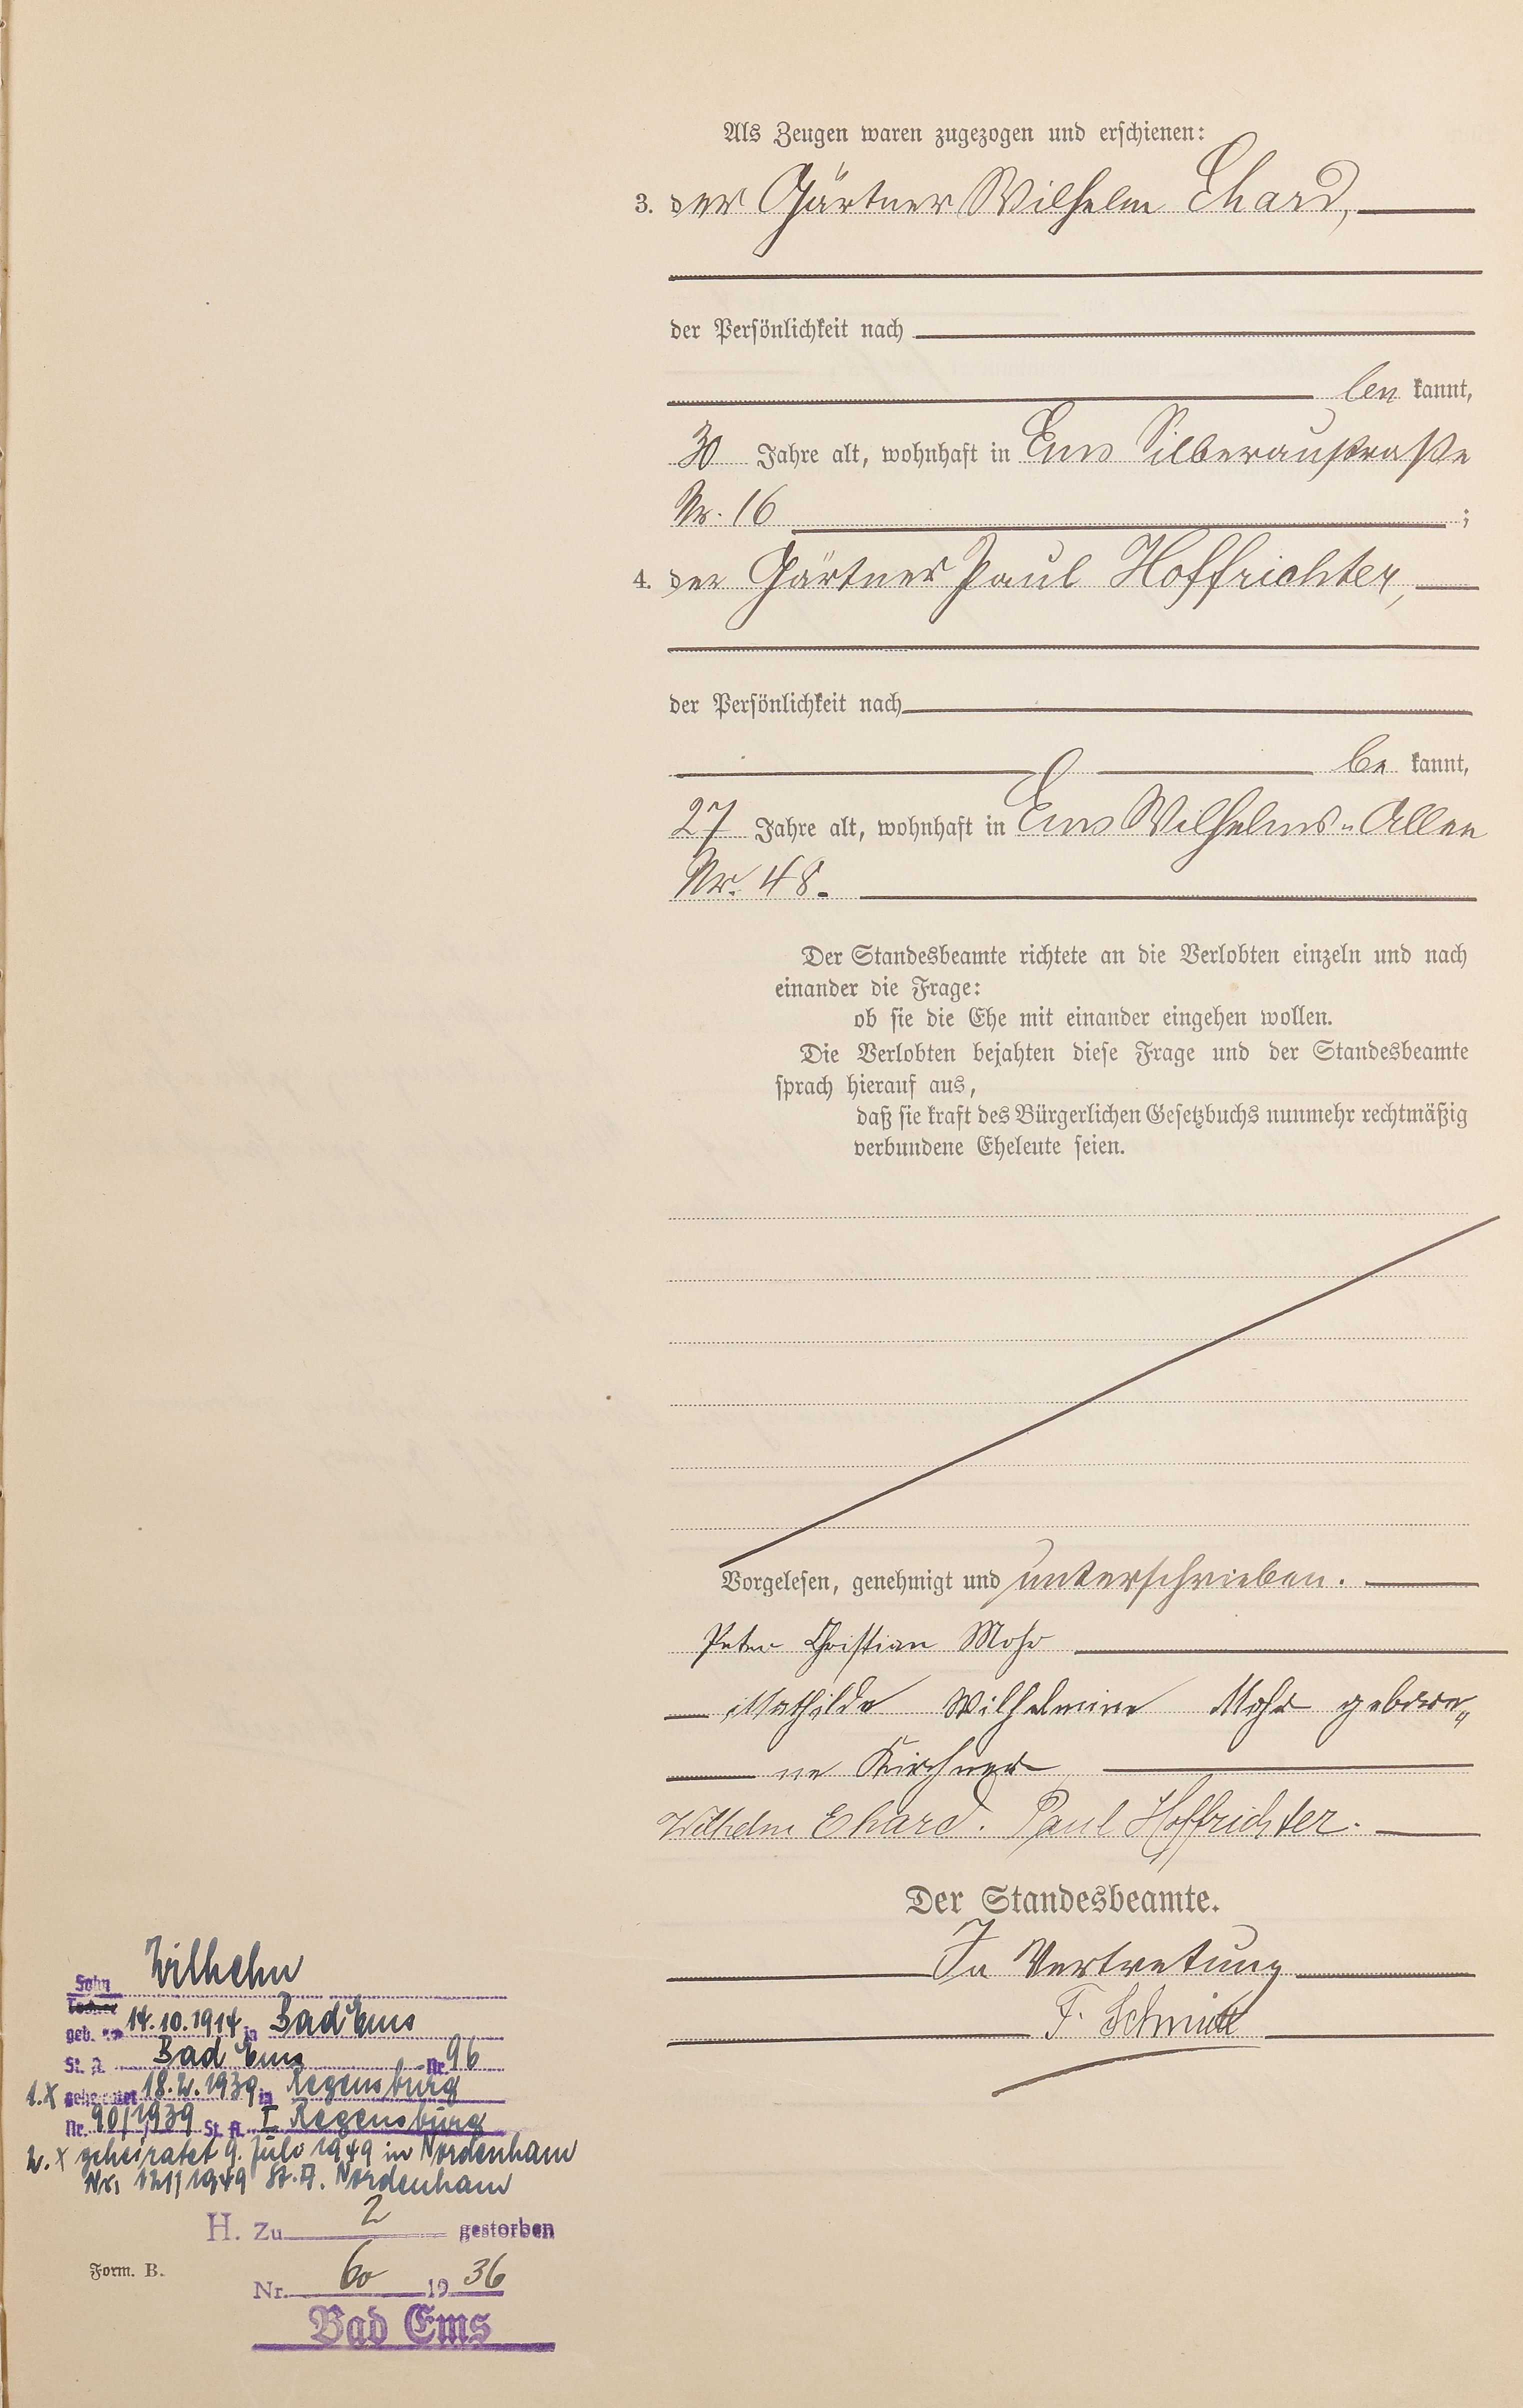 Als Zeugen waren zugezogen und erschienen:
3. der Gärtner Wilhelm Ehard,
der Persönlichkeit nach
be kannt,
30 Jahre alt, wohnhaft in Ems Silberaustraße
Nr. 16 ;
4. der Gärtner Paul Hoffrichter,
der Persönlichkeit nach
be kannt,
27 Jahre alt, wohnhaft in Ems Wilhelms-Allee
Nr. 48.
Der Standesbeamte richtete an die Verlobten einzeln und nach
einander die Frage:
ob sie die Ehe mit einander eingehen wollen.
Die Verlobten bejahten diese Frage und der Standesbeamte
sprach hierauf aus,
daß sie kraft des Bürgerlichen Gesetzbuchs nunmehr rechtmäßig
verbundene Eheleute seien.
Vorgelesen, genehmigt und unterschrieben.
Peter Christian Mohr
Mathilde Wilhelmine Mohr gebore„
ne Kirchner
Wilhelm Ehard. Paul Hoffrichter.
Der Standesbeamte.
In Vertretung
F. Schmitt
Sohn Wilhelm
Tochter
geb. am 14.10.1914 in Bad Ems
St. A. Bad Ems Nr. 96
1.X geheiratet 18.2.1939 in Regensburg
Nr. 90/1939 St. A. I Regensburg
2.X geheiratet 9. Juli 1949 in Nordenham
Nr. 121/1949 St. A. Nordenham
H. Zu 2 gestorben
Form. B.
Nr. 60 1936
Bad Ems